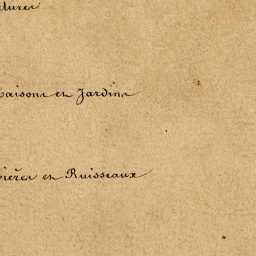 tures
Maisons et Jardins
vières et Ruisseaux